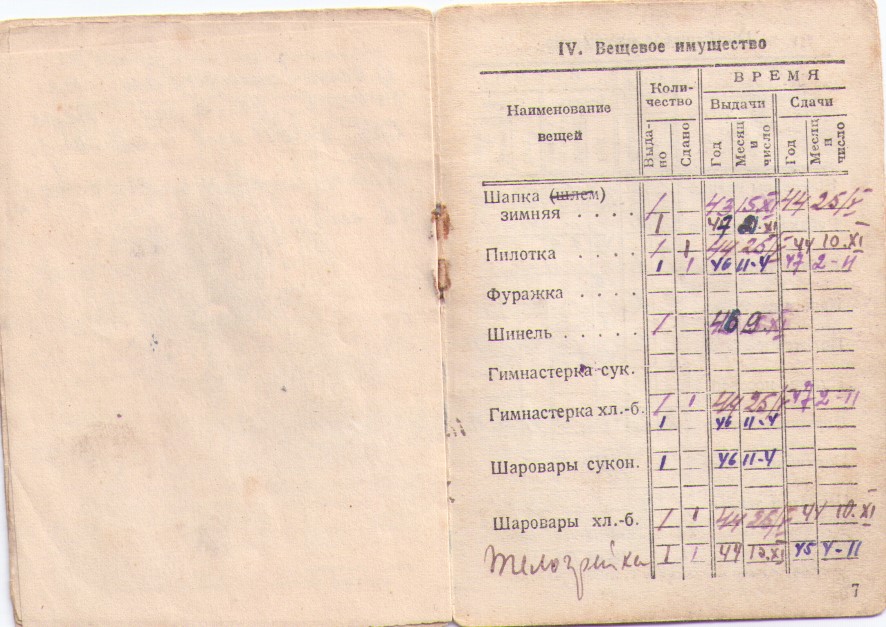 IV. Вещевое имущество
Наименование вещей
Коли-
чество
ВРЕМЯ
Выдачи
Сдачи
Выда-
но
Сдано
Год
Месяц
и
число
Год
Месяц
и
число
Шапка (шлем)
зимняя . . . . 1 — 43 15.XI 44 25/V
1 47 XI —
Пилотка . . . . 1 1 44 25/V 44 10.XI
1 1 46 11-4 47 2-11
Фуражка . . . .
Шинель . . . . . 1 — 46
Гимнастерка сук.
Гимнастерка хл.-б. 1 1 44 25/V 47 2-11
1 46 11-4
Шаровары сукон. 1 46 11-4
Шаровары хл.-б. 1 1 44 25/V 44 10.XI
Телогрейка 1 1 44 XI 45 4-11
7